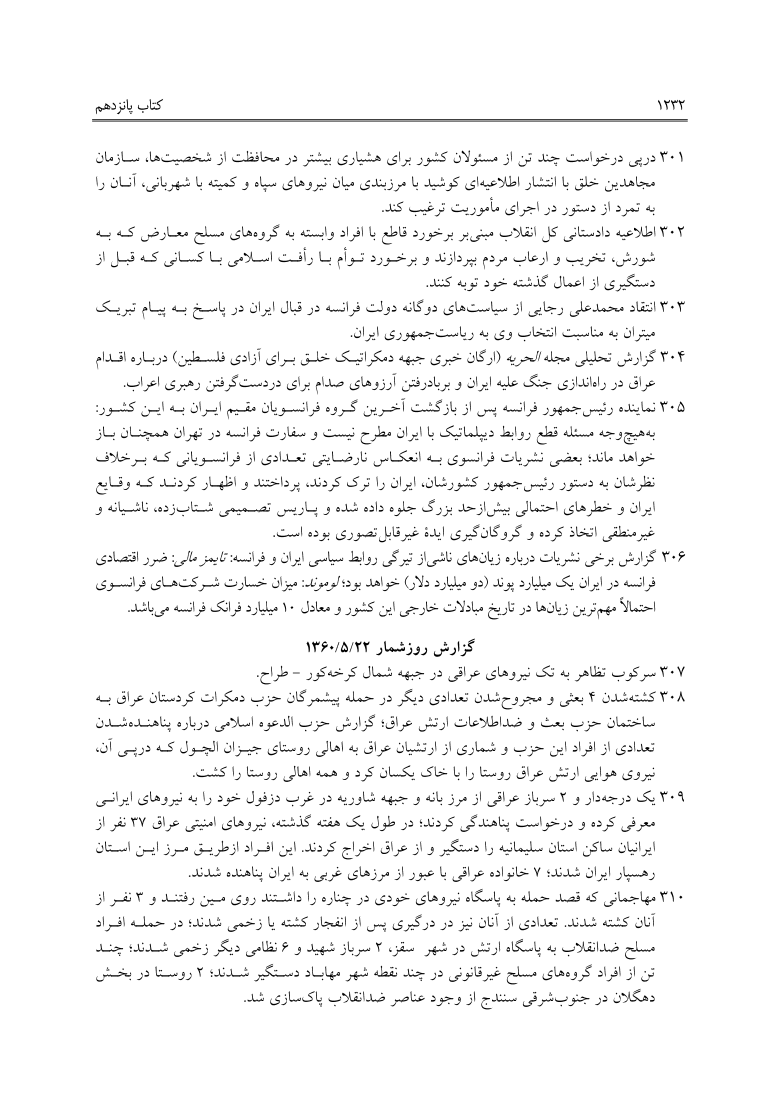 ۱۲۳۲ کتاب پانزدهم
۳۰۱ درپی درخواست چند تن از مسئولان کشور برای هشیاری بیشتر در محافظت از شخصیت‌ها، سـازمان
مجاهدین خلق با انتشار اطلاعیه‌ای کوشید با مرزبندی میان نیروهای سپاه و کمیته با شهربانی، آنـان را
به تمرد از دستور در اجرای مأموریت ترغیب کند.
۳۰۲ اطلاعیه دادستانی کل انقلاب مبنی‌بر برخورد قاطع با افراد وابسته به گروه‌های مسلح معـارض کـه بـه
شورش، تخریب و ارعاب مردم بپردازند و برخـورد تـوأم بـا رأفـت اسـلامی بـا کسـانی کـه قبـل از
دستگیری از اعمال گذشته خود توبه کنند.
۳۰۳ انتقاد محمدعلی رجایی از سیاست‌های دوگانه دولت فرانسه در قبال ایران در پاسـخ بـه پیـام تبریـک
میتران به مناسبت انتخاب وی به ریاست‌جمهوری ایران.
۳۰۴ گزارش تحلیلی مجله الحریه (ارگان خبری جبهه دمکراتیـک خلـق بـرای آزادی فلسـطین) دربـاره اقـدام
عراق در راه‌اندازی جنگ علیه ایران و بربادرفتن آرزوهای صدام برای دردست‌گرفتن رهبری اعراب.
۳۰۵ نماینده رئیس‌جمهور فرانسه پس از بازگشت آخـرین گـروه فرانسـویان مقـیم ایـران بـه ایـن کشـور:
به‌هیچ‌وجه مسئله قطع روابط دیپلماتیک با ایران مطرح نیست و سفارت فرانسه در تهران همچنـان بـاز
خواهد ماند؛ بعضی نشریات فرانسوی بـه انعکـاس نارضـایتی تعـدادی از فرانسـویانی کـه بـرخلاف
نظرشان به دستور رئیس‌جمهور کشورشان، ایران را ترک کردند، پرداختند و اظهـار کردنـد کـه وقـایع
ایران و خطرهای احتمالی بیش‌ازحد بزرگ جلوه داده شده و پـاریس تصـمیمی شـتاب‌زده، ناشـیانه و
غیرمنطقی اتخاذ کرده و گروگان‌گیری ایدهٔ غیرقابل‌تصوری بوده است.
۳۰۶ گزارش برخی نشریات درباره زیان‌های ناشی‌از تیرگی روابط سیاسی ایران و فرانسه: تایمز مالی: ضرر اقتصادی
فرانسه در ایران یک میلیارد پوند (دو میلیارد دلار) خواهد بود؛ لوموند: میزان خسارت شـرکت‌هـای فرانسـوی
احتمالاً مهم‌ترین زیان‌ها در تاریخ مبادلات خارجی این کشور و معادل ۱۰ میلیارد فرانک فرانسه می‌باشد.
گزارش روزشمار ۱۳۶۰/۵/۲۲
۳۰۷ سرکوب تظاهر به تک نیروهای عراقی در جبهه شمال کرخه‌کور – طراح.
۳۰۸ کشته‌شدن ۴ بعثی و مجروح‌شدن تعدادی دیگر در حمله پیشمرگان حزب دمکرات کردستان عراق بـه
ساختمان حزب بعث و ضداطلاعات ارتش عراق؛ گزارش حزب الدعوه اسلامی درباره پناهنـده‌شـدن
تعدادی از افراد این حزب و شماری از ارتشیان عراق به اهالی روستای جیـزان الچـول کـه درپـی آن،
نیروی هوایی ارتش عراق روستا را با خاک یکسان کرد و همه اهالی روستا را کشت.
۳۰۹ یک درجه‌دار و ۲ سرباز عراقی از مرز بانه و جبهه شاوریه در غرب دزفول خود را به نیروهای ایرانـی
معرفی کرده و درخواست پناهندگی کردند؛ در طول یک هفته گذشته، نیروهای امنیتی عراق ۳۷ نفر از
ایرانیان ساکن استان سلیمانیه را دستگیر و از عراق اخراج کردند. این افـراد ازطریـق مـرز ایـن اسـتان
رهسپار ایران شدند؛ ۷ خانواده عراقی با عبور از مرزهای غربی به ایران پناهنده شدند.
۳۱۰ مهاجمانی که قصد حمله به پاسگاه نیروهای خودی در چناره را داشـتند روی مـین رفتنـد و ۳ نفـر از
آنان کشته شدند. تعدادی از آنان نیز در درگیری پس از انفجار کشته یا زخمی شدند؛ در حملـه افـراد
مسلح ضدانقلاب به پاسگاه ارتش در شهر سقز، ۲ سرباز شهید و ۶ نظامی دیگر زخمی شـدند؛ چنـد
تن از افراد گروه‌های مسلح غیرقانونی در چند نقطه شهر مهابـاد دسـتگیر شـدند؛ ۲ روسـتا در بخـش
دهگلان در جنوب‌شرقی سنندج از وجود عناصر ضدانقلاب پاک‌سازی شد.